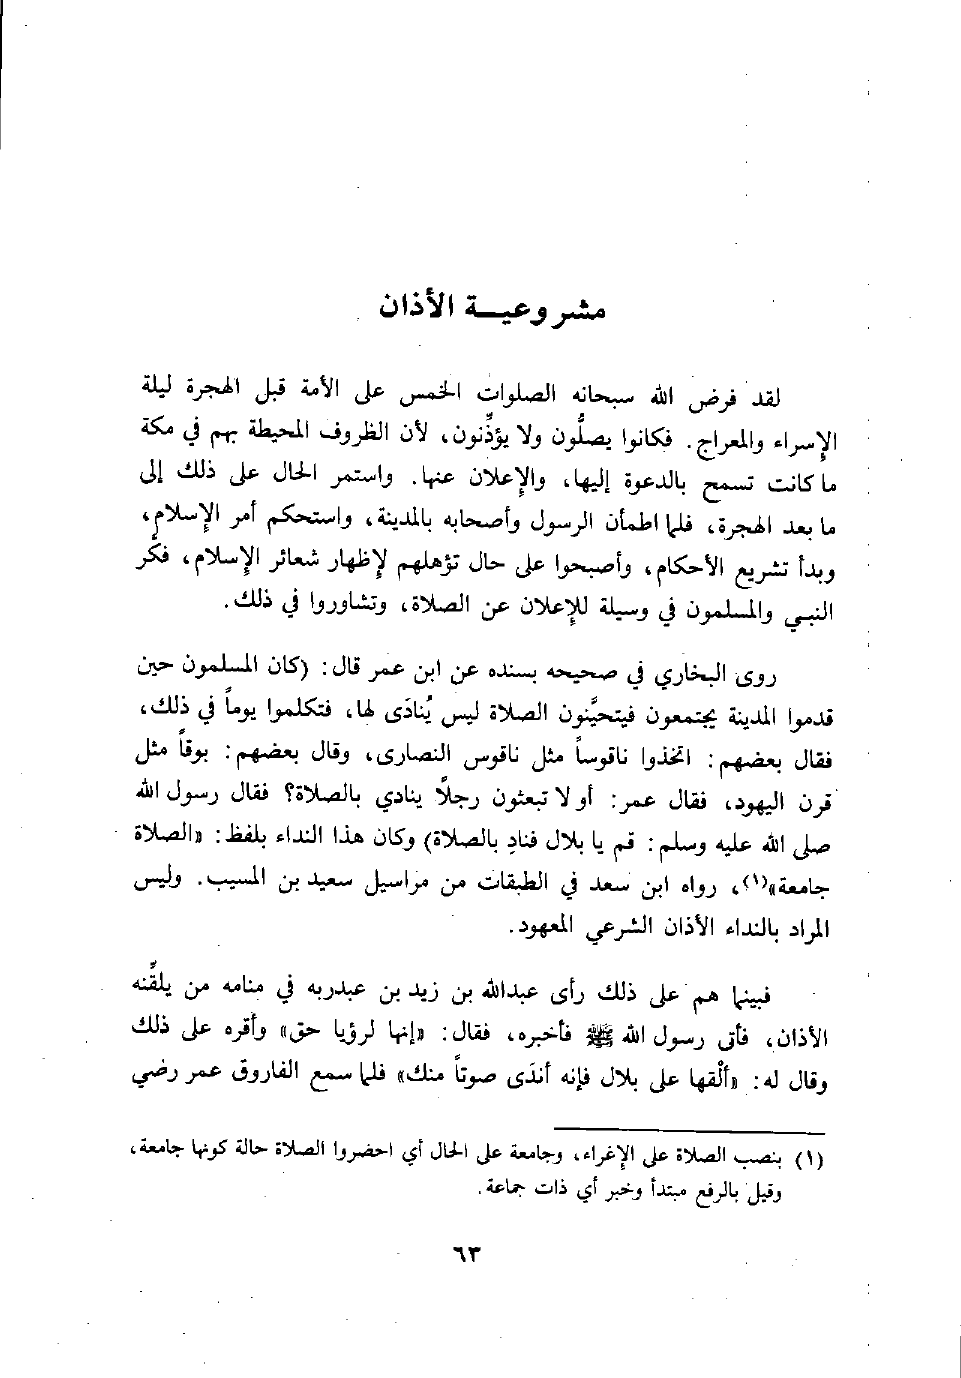 مشروعيــة الأذان
لقد فرض الله سبحانه الصلوات الخمس على الأمة قبل الهجرة ليلة
الإسراء والمعراج. فكانوا يصلُّون ولا يؤذِّنون، لأن الظروف المحيطة بهم في مكة
ما كانت تسمح بالدعوة إليها، والإعلان عنها. واستمر الحال على ذلك إلى
ما بعد الهجرة، فلما اطمأن الرسول وأصحابه بالمدينة، واستحكم أمر الإسلام،
وبدأ تشريع الأحكام، وأصبحوا على حال تؤهلهم لإظهار شعائر الإسلام، فكَّر
النبي والمسلمون في وسيلة للإعلان عن الصلاة، وتشاوروا في ذلك.
روى البخاري في صحيحه بسنده عن ابن عمر قال: (كان المسلمون حين
قدموا المدينة يجتمعون فيتحيَّنون الصلاة ليس يُنادَى لها، فتكلموا يوماً في ذلك،
فقال بعضهم: اتخذوا ناقوساً مثل ناقوس النصارى، وقال بعضهم: بوقاً مثل
قرن اليهود، فقال عمر: أو لا تبعثون رجلًا ينادي بالصلاة؟ فقال رسول الله
صلى الله عليه وسلم: قم يا بلال فنادِ بالصلاة) وكان هذا النداء بلفظ: «الصلاة
جامعة»(١)، رواه ابن سعد في الطبقات من مراسيل سعيد بن المسيب. وليس
المراد بالنداء الأذان الشرعي المعهود.
فبينما هم على ذلك رأى عبدالله بن زيد بن عبدربه في منامه من يلقِّنه
الأذان، فأتى رسول الله ﷺ فأخبره، فقال: «إنها لرؤيا حق» وأقره على ذلك
وقال له: «ألْقها على بلال فإنه أندَى صوتاً منك» فلما سمع الفاروق عمر رضي
(١) بنصب الصلاة على الإغراء، وجامعة على الحال أي احضروا الصلاة حالة كونها جامعة،
وقيل بالرفع مبتدأ وخبر أي ذات جماعة.
٦٣